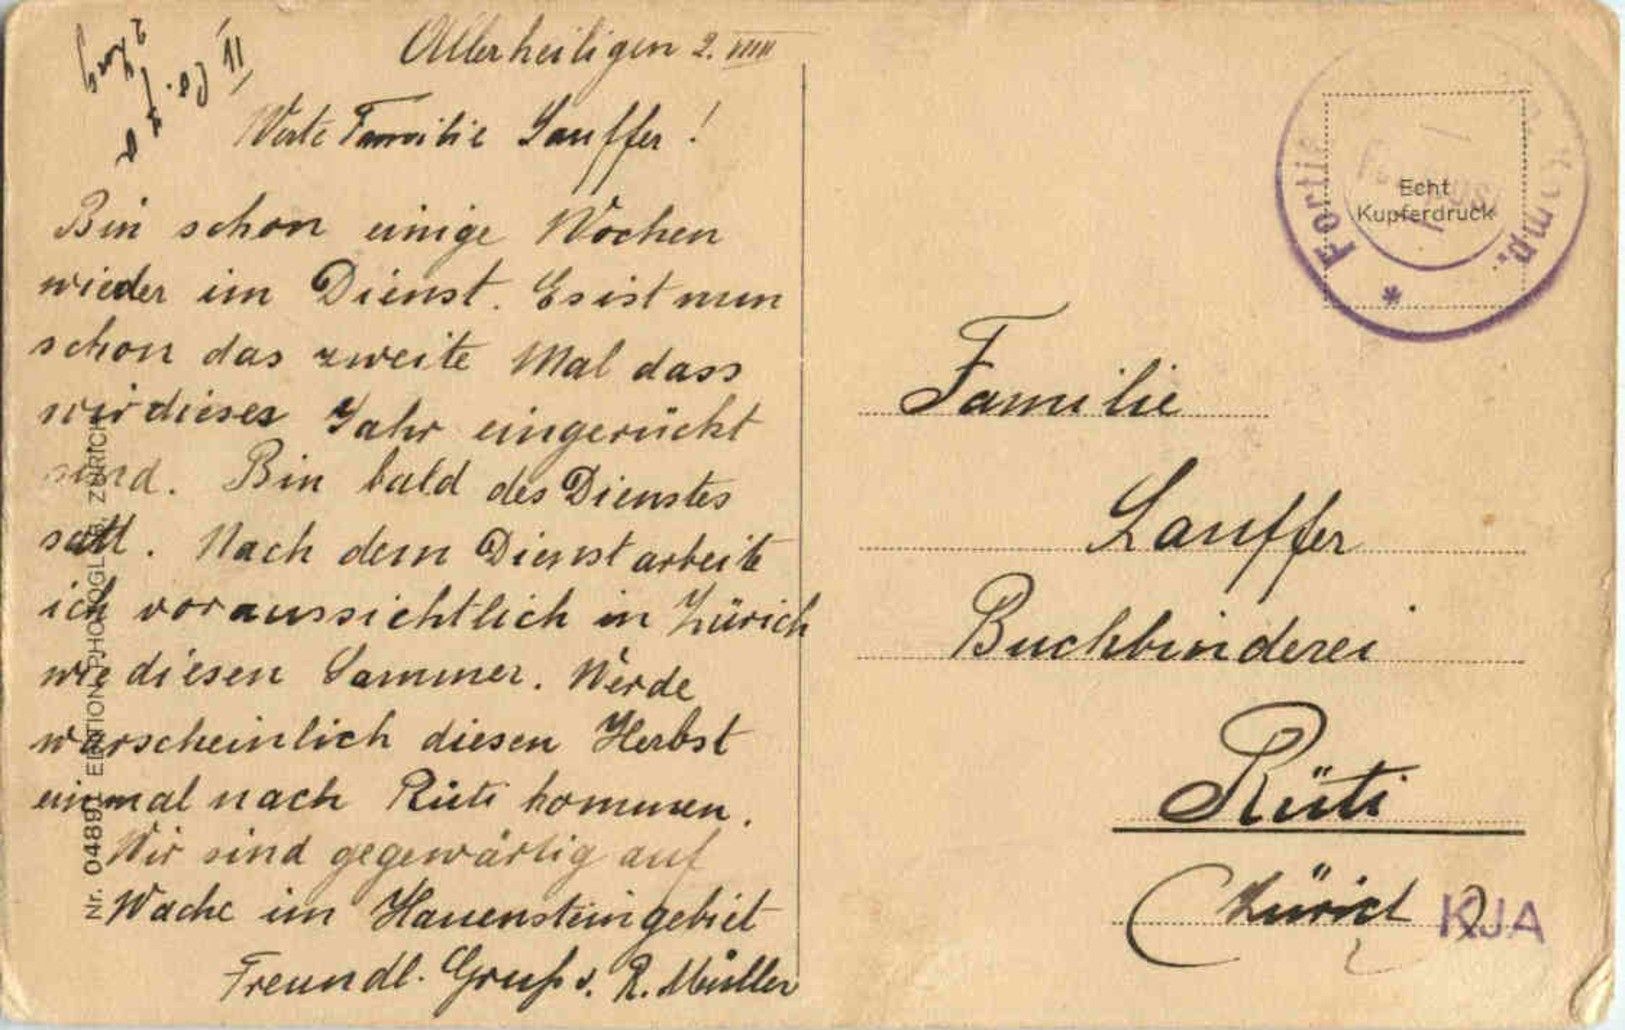 Allerheiligen 2. VIII
Werte Familie Lauffer!
Bin schon einige Wochen
wieder im Dienst. Es ist nun
schon das zweite Mal dass
wir dieses Jahr eingerückt
sind. Bin bald des Dienstes
satt. Nach dem Dienst arbeite
ich voraussichtlich in Zürich
wie diesen Sommer. Werde
warscheinlich diesen Herbst
einmal nach Rüti kommen.
Wir sind gegewärtig auf
Wache im Hauensteingebiet
Freundl. Gruß v. R. Müller
Nr. 0489 EDITION PHOTOGLOB, ZÜRICH
Echt
Kupferdruck
* Fortif Komp.
Familie
Lauffer
Buchbinderei
Rüti
(Zürich)
KJA